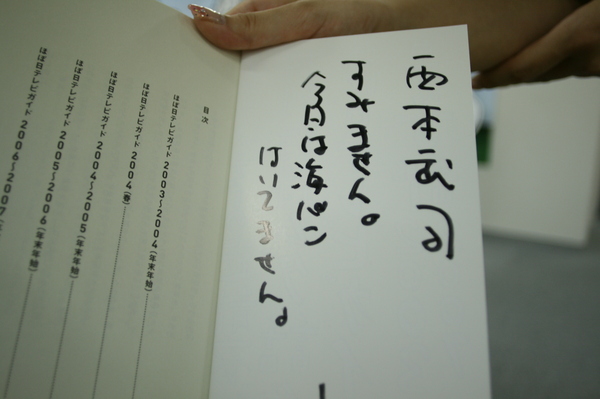 西本武司
すみません。
今日は海パン
はいてません。
目次
ほぼ日テレビガイド 2003〜2004 (年末年始)
ほぼ日テレビガイド 2004 (春)
ほぼ日テレビガイド 2004〜2005 (年末年始)
ほぼ日テレビガイド 2005〜2006 (年末年始)
ほぼ日テレビガイド 2006〜2007